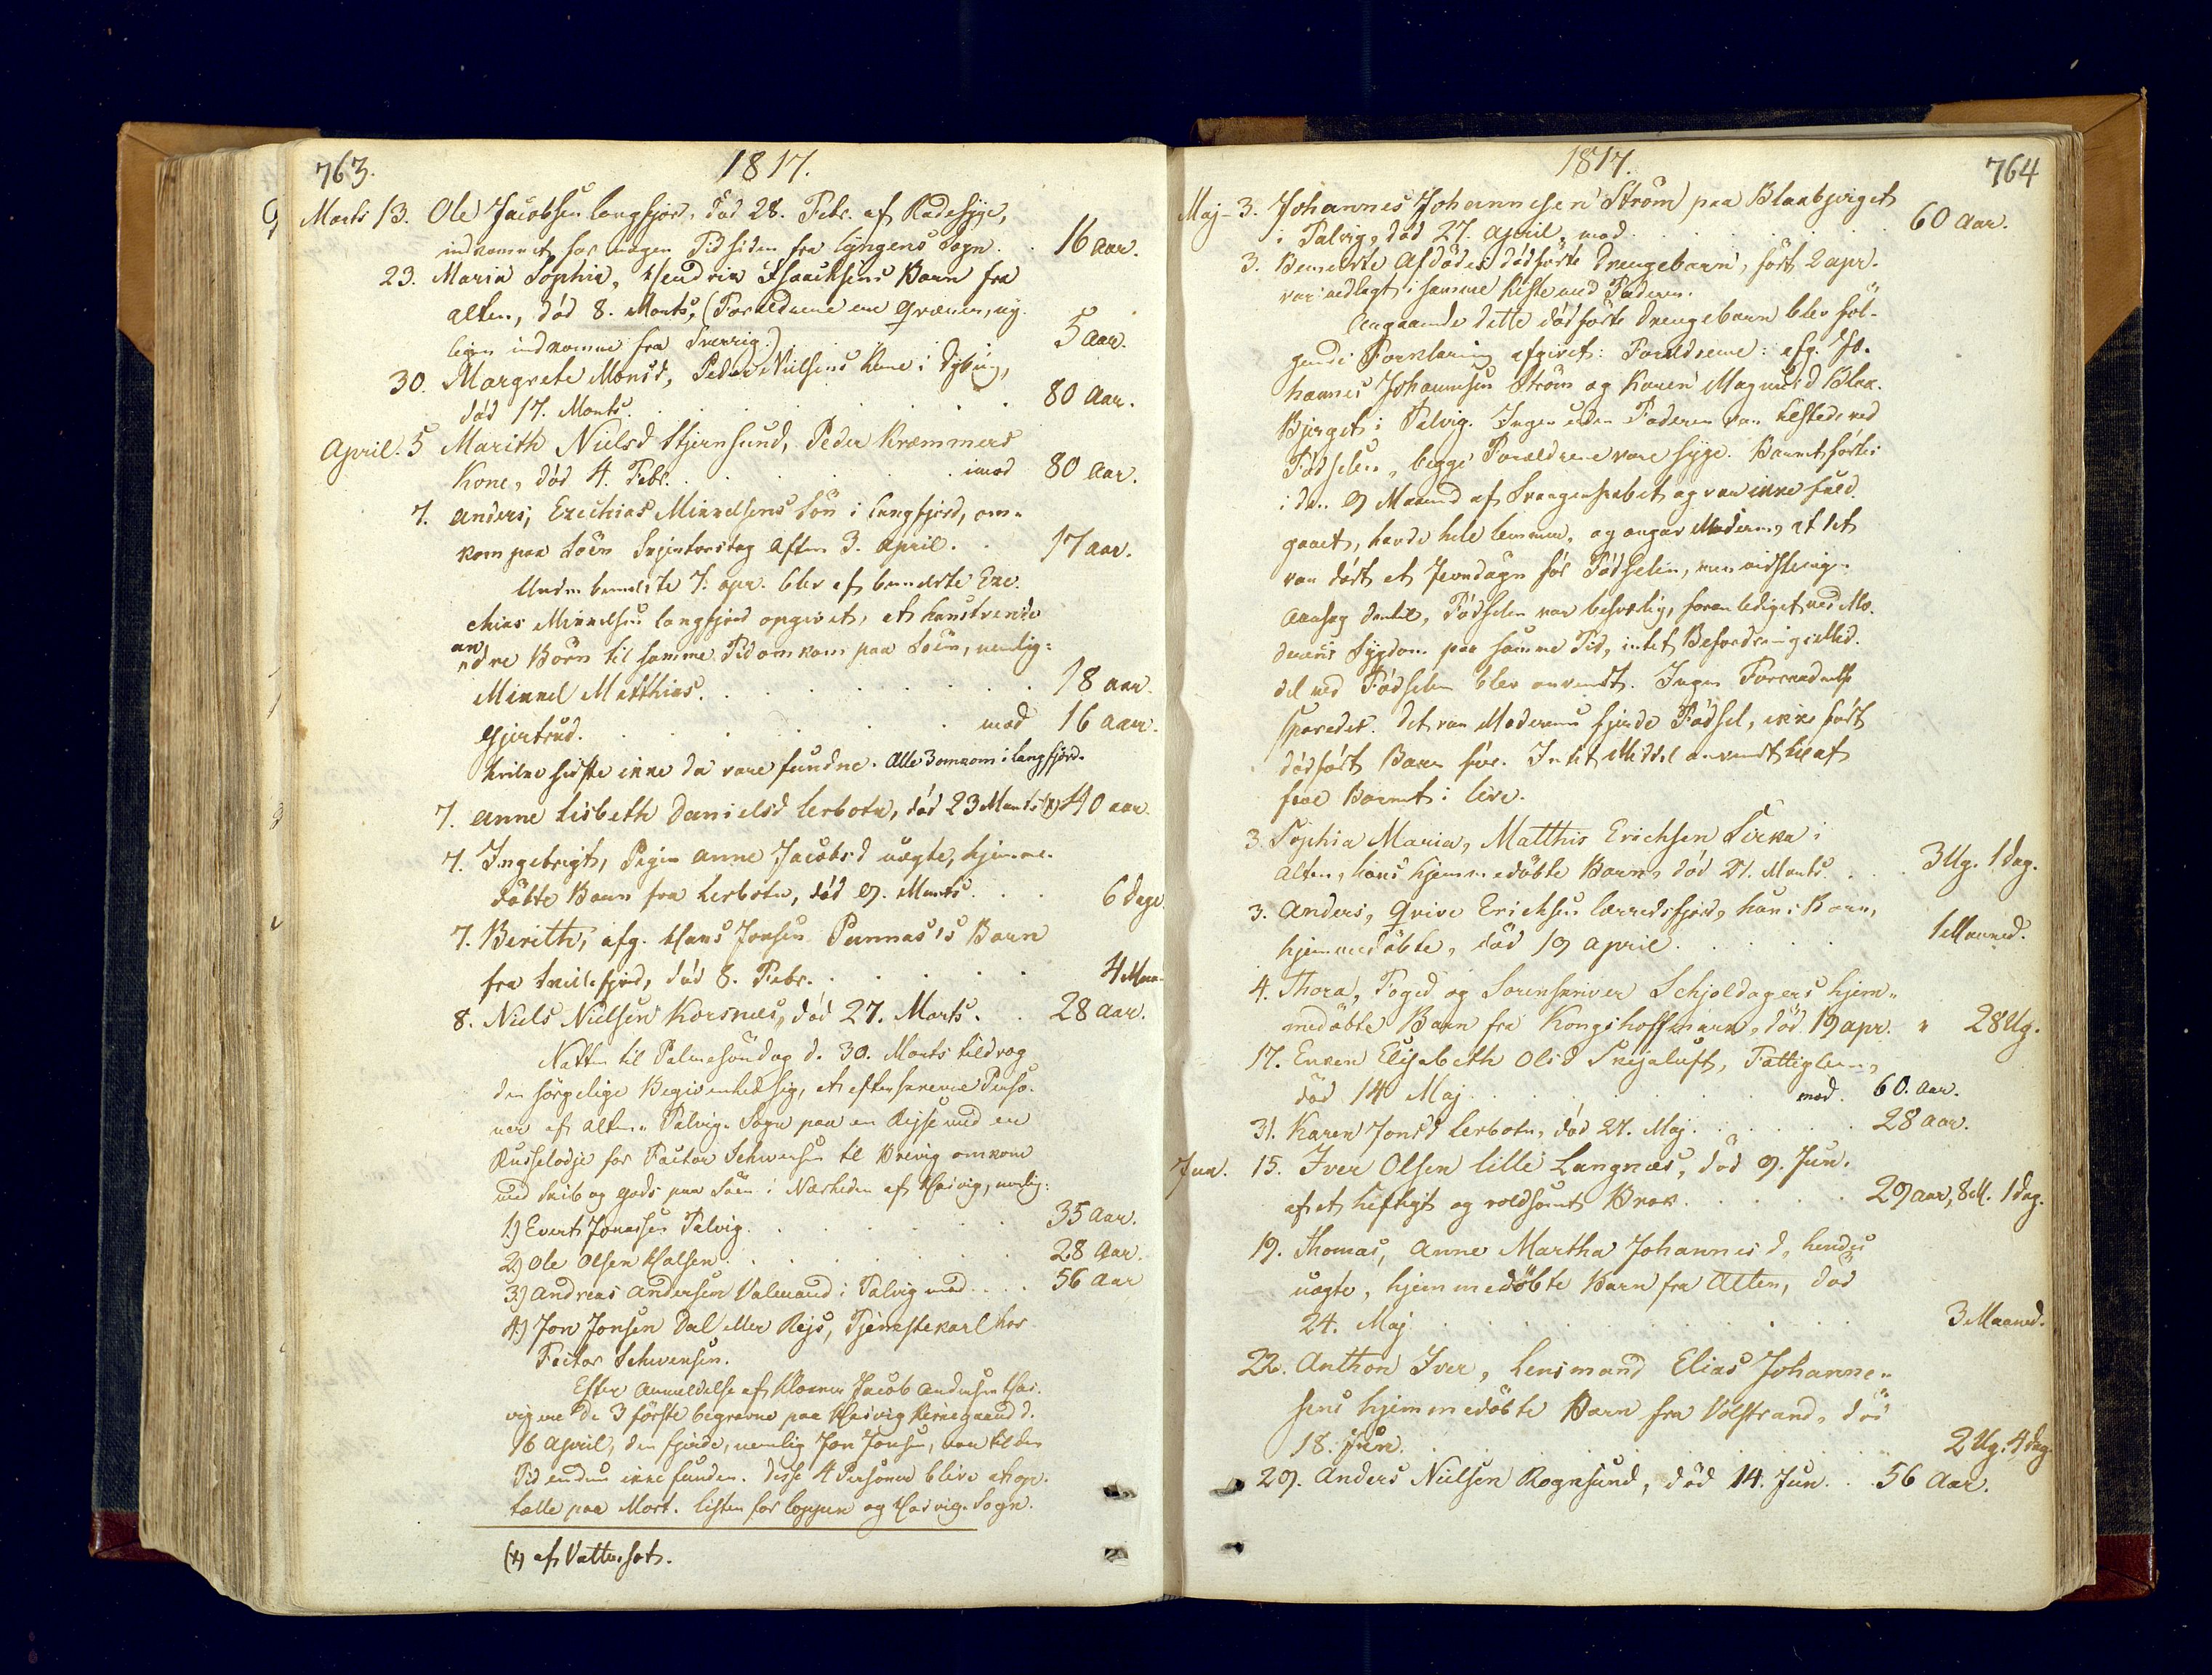 763.
1817.
Marts 13. Ole Jacobsen Langfjord, död 28. Febr. af Radesyge,
indkommet for nogen Tid siden fra Lyngens Sogn. . 16 Aar.
23. Maria Sophia, Hendrik Isaacksens Barn fra
Alten, död 8. Marts, (Forældrene ere Qvæner, ny-
ligen indkomne fra Sverrig.) . . . 5 Aar.
30. Margrete Monsd, Peder Nielsens Kone i
död 17. Marts. . . . 80 Aar.
April. 5 Marith Nielsd Stjernsund, Peder Kræmmers
Kone, död 4. Febr. . . . imod 80 Aar.
7. Anders, Ezechias Mikkelsens Sön i Langfjord, om-
kom paa Söen Skjertorsdag Aften 3. April. . 17 Aar.
Under bemeldte 7. Apr. blev af bemeldte Eze-
chias Mikkelsen Langfjord opgivet, at hans tvende
andre Börn til samme Tid omkom paa Söen, nemlig:
Mikkel Matthias. . . . 18 Aar.
Gjertrud. . . . imod 16 Aar.
hvilke sidste ikke da vare fundne. Alle 3 omkom i Langfjord.
7. Anne Lisbeth Danielsd Lerbotn, död 23 Marts (x) 40 Aar.
7. Ingebrigt, Pigen Anne Jacobsd uægte, hjemme-
döbte Barn fra Lerbotn, död 9. Marts. . . 6 Dage.
7. Berith, afg. Hans Jonsen Punnas's Barn
fra Trillefjord, död 8. Febr. . . . 4 Maa
8. Niels Nielsen Korsnæs, död 27. Marts. . 28 Aar.
Natten til Palmesöndag d. 30. Marts tildrog
den sörgelige Begivenhed sig, at efterskrevne Perso-
ner af Alten-Talvigs Sogn paa en Rejse med en
Russelodje for Factor Schwensen til Brevig omkom
med Skib og Gods paa Söen i Nærheden af Hasvig, nemlig:
1.) Evert Jonassen Talvig. . . . 35 Aar.
2.) Ole Olsen Halsen. . . . 28 Aar.
3.) Andreas Andersen Valmand i Talvig imod. . . 56 Aar
4.) Jon Jonsen Dal eller Rejs, Tjenestekarl hos
Factor Schwensen.
Efter Anmeldelse af Klokker Jacob Andersen Has-
vig ere de 3 förste begravne paa Hasvig Kirkegaard d.
16 April, den fjerde, nemlig Jon Jonsen, var til den
Tid endnu ikke funden. Disse 4 Personer blive at op-
tælle paa Mort. Listen for Loppen og Hasvigs Sogn.
(x) af Vattersot.
1817.
764
Maj- 3. Johannes Johannesen Ström paa Blaabjerget
i Talvig, död 27. April, imod. . . . 60 Aar.
3. Bemeldte Afdödes dödfödte Drengebarn, födt 2 Apr.
var nedlagt i samme Kiste med Faderen.
Angaaende dette dödfödte Drengebarn blev föl-
gende Forklaring afgivet: Forældrene: afg. Jo-
hannes Johannesen Ström og Karen Magnusd Blaa-
Bjerget i Talvig. Ingen uden Faderen var tilstede ved
Födselen, begge Forældrene vare syge. Barnet födtes
i den 9 Maaned af Svangerskabet og var ikke fuld-
gaaet, havde hele Lemmer, og angav Moderen, at det
var dödt et Jevndøgn för Födselen, men vidste ingen
Aarsag dertil, Födselen var besværlig, foranlediget ved Mo-
derens Sygdom paa samme Tid, intet Befordringsmid-
del ved Födselen blev anvendt. Ingen Forraadnelse
sporedes. Det var Moderens fjerde Födsel, ikke födt
dödfödt Barn för. Intet Middel anvendt til at
faae Barnet i Live.
3. Sophia Maria, Matthis Erichsen Sirka i
Alten, hans hjemmedöbte Barn, död 21. Marts. . . 3 Ug. 1 Dag.
3. Anders, Qvive Erichsen Lærredsfjord, hans Barn,
hjemmedöbte, död 19 April. . . . 1 Maaned.
4. Thora, Foged og Sorenskriver Schjoldagers hjem-
medöbte Barn fra Kongshoffmark, död 19 Apr. " 28 Ug.
17. Enken Elisabeth Olsd Skejaluft, Fattiglem,
död 14 Maj. . . . imod. 60. Aar.
31. Karen Jonsd Lerbotn, död 27. Maj. . . . 28 Aar.
Jun. 15. Iver Olsen Lille Langnæs, död 9. Jun.
af et heftigt og voldsomt Brok. . . . 29 Aar, 8 M. 1 Dag.
19. Thomas, Anne Martha Johannisd, hendes
uægte, hjemmedöbte Barn fra Alten, död
24. Maj. . . . 3 Maaned.
22. Anthon Iver, Lensmand Elias Johanne-
sens hjemmedöbte Barn fra Volstrand, död
18. Jun. . . . 2 Ug. 4 Dag.
29. Anders Nielsen Rognsund, död 14. Jun. . . 56 Aar.